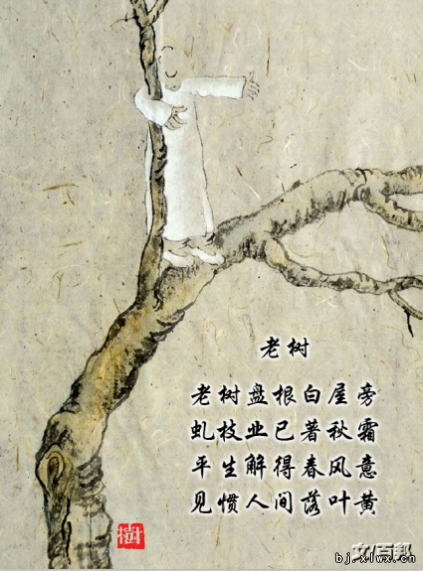 老树
老树盘根白屋旁
虬枝业已著秋霜
平生解得春风意
见惯人间落叶黄
樹
文百邦
bj.xlwx.cn